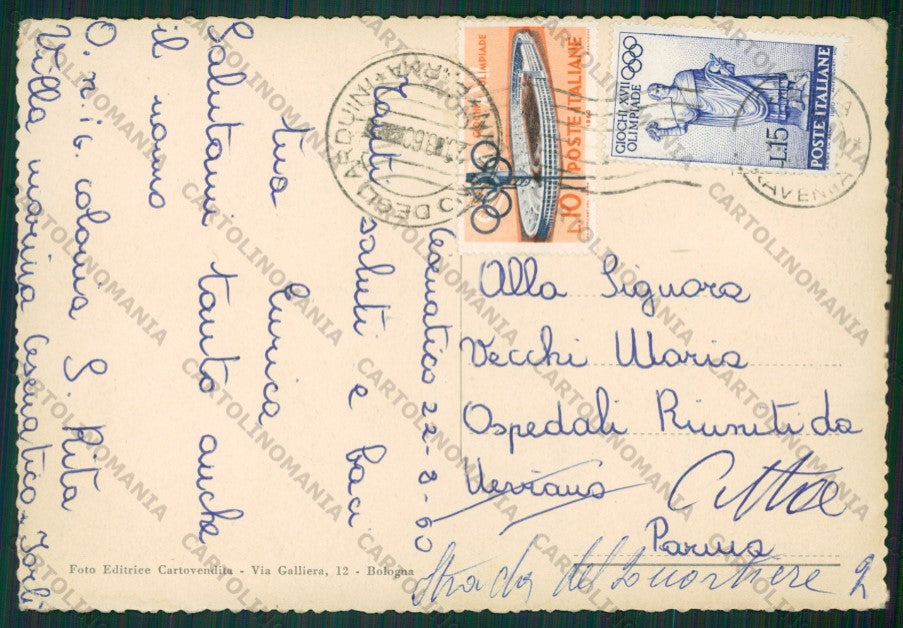 Cesenatico 22-8-60
saluti e baci
tua Enrica
Salutami tanto anche
il nonno
O. n. 16. colonia S. Rita
Villa marina Cesenatico. Forlì
GIOCHI DELLA XVII OLIMPIADE
L.10 POSTE ITALIANE
GIOCHI XVII
OLIMPIADE
L.15
POSTE ITALIANE
RAVENNA
Alla Signora
Vecchi Maria
Ospedali Riuniti da
Neviano Città
Parma
Strada del Quartiere 2
Foto Editrice Cartovendita - Via Galliera, 12 - Bologna
CARTOLINOMANIA